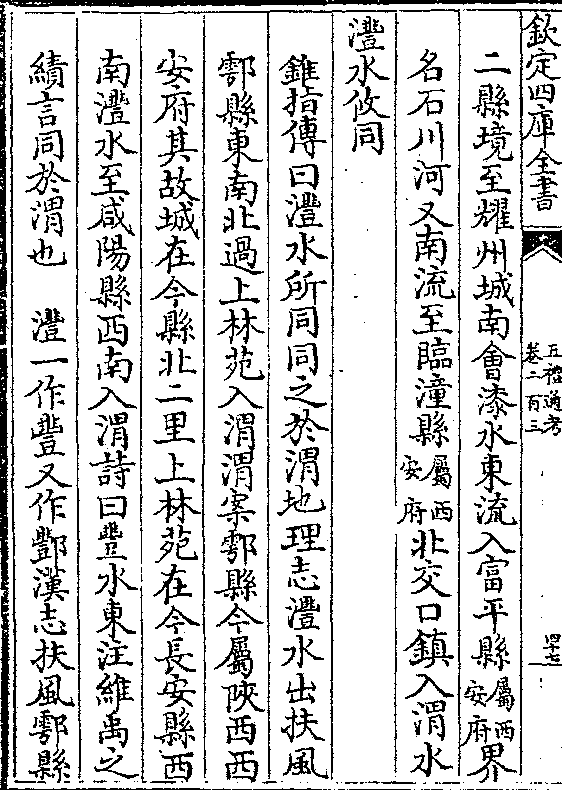 欽定四庫全書
五禮通考
卷二百三
四十七
二縣境至耀州城南會漆水東流入富平縣屬西安府界
名石川河又南流至臨潼縣屬西安府北交口鎮入渭水
灃水攸同
錐指傳曰灃水所同同之於渭地理志灃水出扶風
鄠縣東南北過上林苑入渭渭案鄠縣今屬陜西西
安府其故城在今縣北二里上林苑在今長安縣西
南灃水至咸陽縣西南入渭詩曰豐水東注維禹之
績言同於渭也　灃一作豐又作酆漢志扶風鄠縣